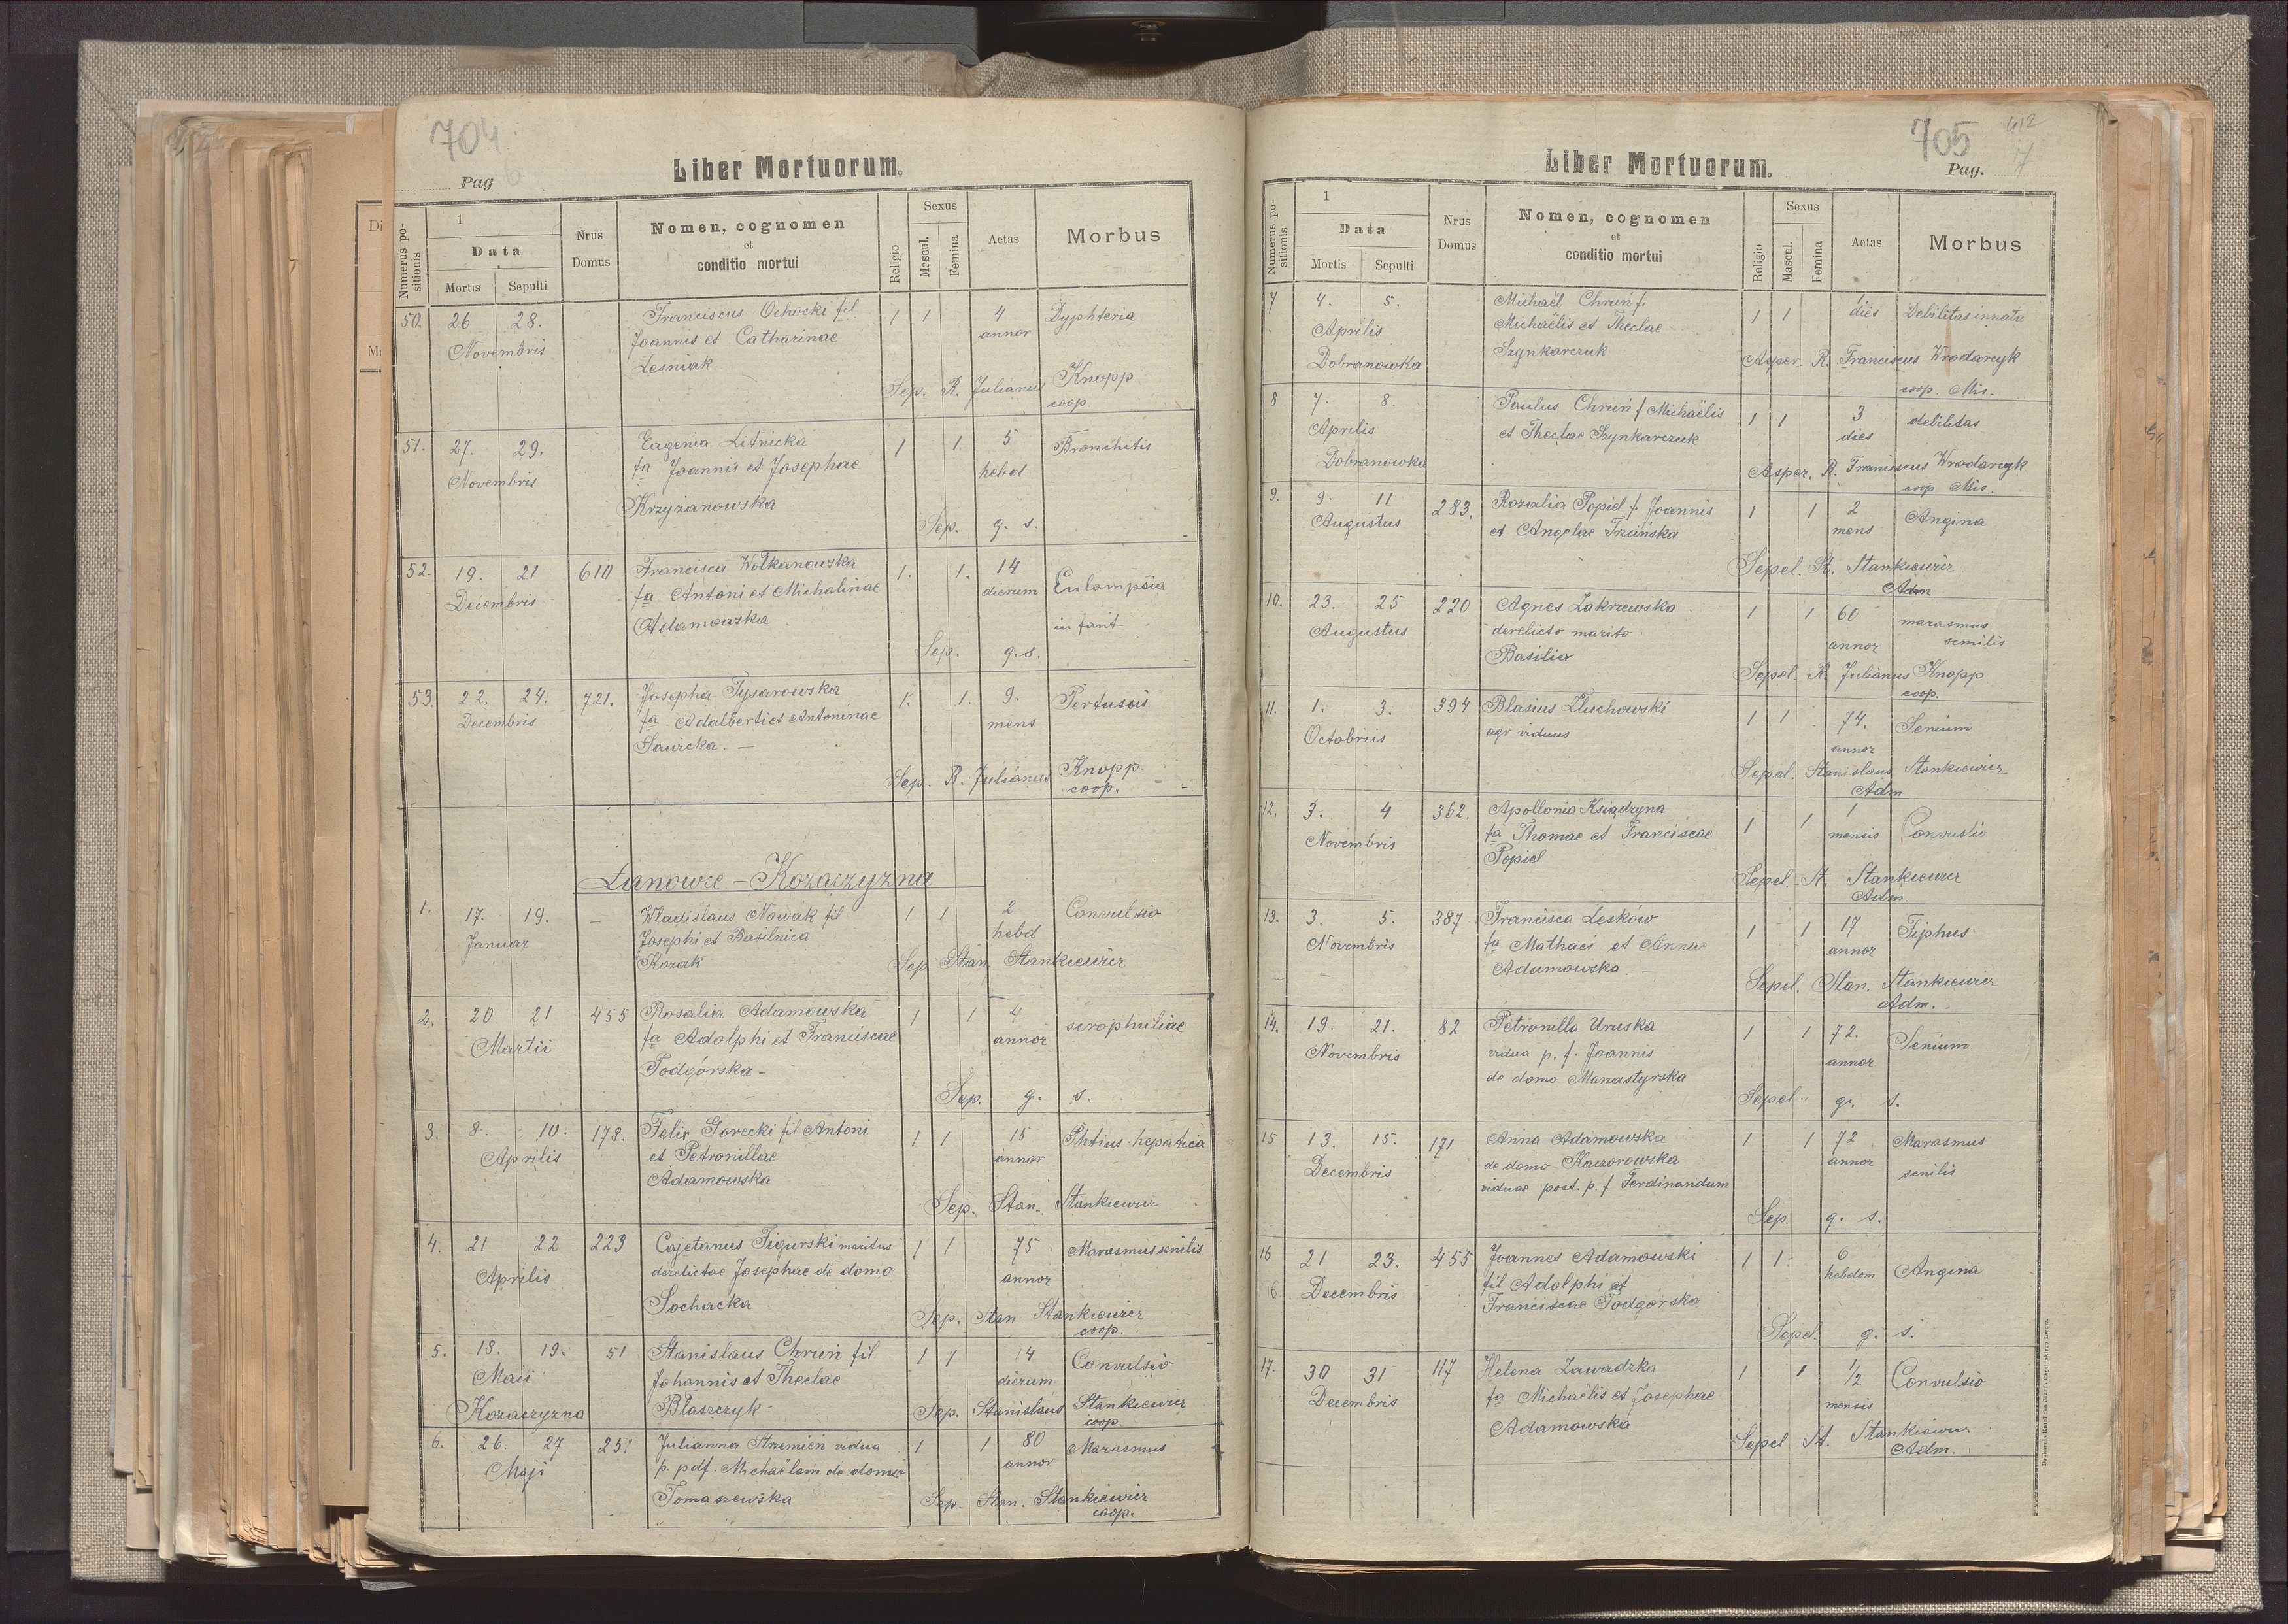 704
Pag 6
Liber Mortuorum.
Numerus positionis
1
Data
Mortis Sepulti
Nrus Domus
Nomen, cognomen
et
conditio mortui
Religio
Sexus
Mascul. Femina
Aetas
Morbus
50. 26 28. Franciscus Ochocki fil. 1 1 4 Dyphteria
Novembris Joannis et Catharinae annor
Leśniak
Sep. R. Julianus Knopp
coop
51. 27. 29. Eugenia Litnicka 1 1. 5 Bronchitis
Novembris fa Joannis et Josephae hebd
Krzyżanowska
Sep. g. s.
52. 19. 21 610 Francisca Wołkanowska 1. 1. 14
Decembris fa Antoni et Michalinae dierum Enlampsia
Adamowska infant
Sep. g. s.
53. 22. 24. 721. Josepha Tysarowska 1. 1. 9. Pertussis
Decembris fa Adalberti et Antoninae mens
Sawicka. –
Sep. R. Julianus Knopp
coop.
Łanowce – Kozaczyzna
1. 17. 19. – Wladislaus Nowak fil 1 1 2 Convulsio
Januar Josephi et Basilnica hebd
Kozak Sep Stan. Stankiewicz
2. 20 21 455 Rosalia Adamowska 1 1 4 scrophuliae
Martii fa Adolphi et Franciscae annor
Podgórska –
Sep. g. s.
3. 8. 10. 178. Felix Gorecki fil Antoni 1 1 15 Phtius hepatica
Aprilis et Petronillae annor
Adamowska
Sep. Stan. Stankiewicz
4. 21 22 223 Cajetanus Figurski maritus 1 1 75 Marasmus senilis
Aprilis derelictae Josephae de domo annor
Sochacka
Sep. Stan Stankiewicz
coop.
5. 18. 19. 51 Stanislaus Chruń fil 1 1 14 Convulsio
Maii Johannis et Theclae dierum
Kozaczyzna Błaszczyk Sep. Stanislaus Stankiewicz
coop.
6. 26. 27 25. Julianna Strzemień vidua 1 1 80 Marasmus
Maji p. pdf. Michaëlem de domo annor
Tomaszewska Sep. Stan. Stankiewicz
coop.
705
412
Liber Mortuorum.
Pag. 7
Numerus positionis
1
Data
Mortis Sepulti
Nrus Domus
Nomen, cognomen
et
conditio mortui
Religio
Sexus
Mascul. Femina
Aetas
Morbus
7 4. 5. Michaël Chruń f. 1 1 1 Debilitas innata
Aprilis Michaëlis et Theclae dies
Dobranowka Szynkarczuk Asper. R. Franciscus Wrodarcyk
coop Mis.
8 7. 8. Paulus Chruń f Michaëlis 1 1 3 debilitas
Aprilis et Theclae Szynkarczuk dies
Dobranowka Asper. R. Franciscus Wrodarcyk
coop Mis.
9. 9. 11 283. Rozalia Popiel f. Joannis 1 1 2 Angina
Augustus et Angelae Trzcińska mens
Sepel. St. Stankiewicz
Adm
10. 23. 25 220 Agnes Zakrzewska 1 1 60 marasmus
Augustus derelicto marito annor senilis
Basilio
Sepel. R. Julianus Knopp
coop.
11. 1. 3. 394 Blasius Zluchowski 1 1 74. Senium
Octobriis agr viduus annor
Sepel. Stanislaus Stankiewicz
Adm
12. 3. 4 362. Apollonia Książdzyna 1 1 1 Convulsio
Novembris fa Thomae et Franciscae mensis
Popiel
Sepel. St. Stankiewicz
Adm.
13. 3. 5. 387 Francisca Lesków 1 1 17 Tiphus
Novembris fa Mathaei et Annae annor
Adamowska. –
Sepel. Stan. Stankiewicz
Adm.
14. 19. 21. 82 Petronilla Uruska 1 1 72. Senium
Novembris vidua p. f. Joannis annor
de domo Manastyrska
Sepel. g. s.
15 13. 15. 171 Anna Adamowska 1 1 72 Marasmus
Decembris de domo Kaczorowska annor senilis
viduae post. p. f Ferdinandum
Sep. g. s.
16 21 23. 455 Joannes Adamowski 1 1 6 Angina
16 Decembris fil Adolphi et hebdom
Franciscae Podgórska
Sepel g. s.
17. 30 31 117 Helena Zawadzka 1 1 1/2 Convulsio
Decembris fa Michaëlis et Josephae mensis
Adamowska
Sepel. St. Stankiewicz
Adm.